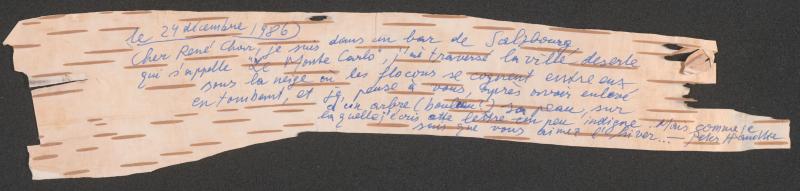 le 24 décembre 1986)
Cher René Char, je suis dans un bar de Salzbourg
qui s'appelle "Le Monte Carlo", j'ai traversé la ville deserte
sous la neige ou les flocons se cognent entre eux
en tombant, et je pense à vous, après avoir enlevé
d'un arbre (bouleau?) sa peau, sur
laquelle j'écris cette lettre un peu indigne. Mais comme je
sais que vous aimez l'hiver... — Peter Handke